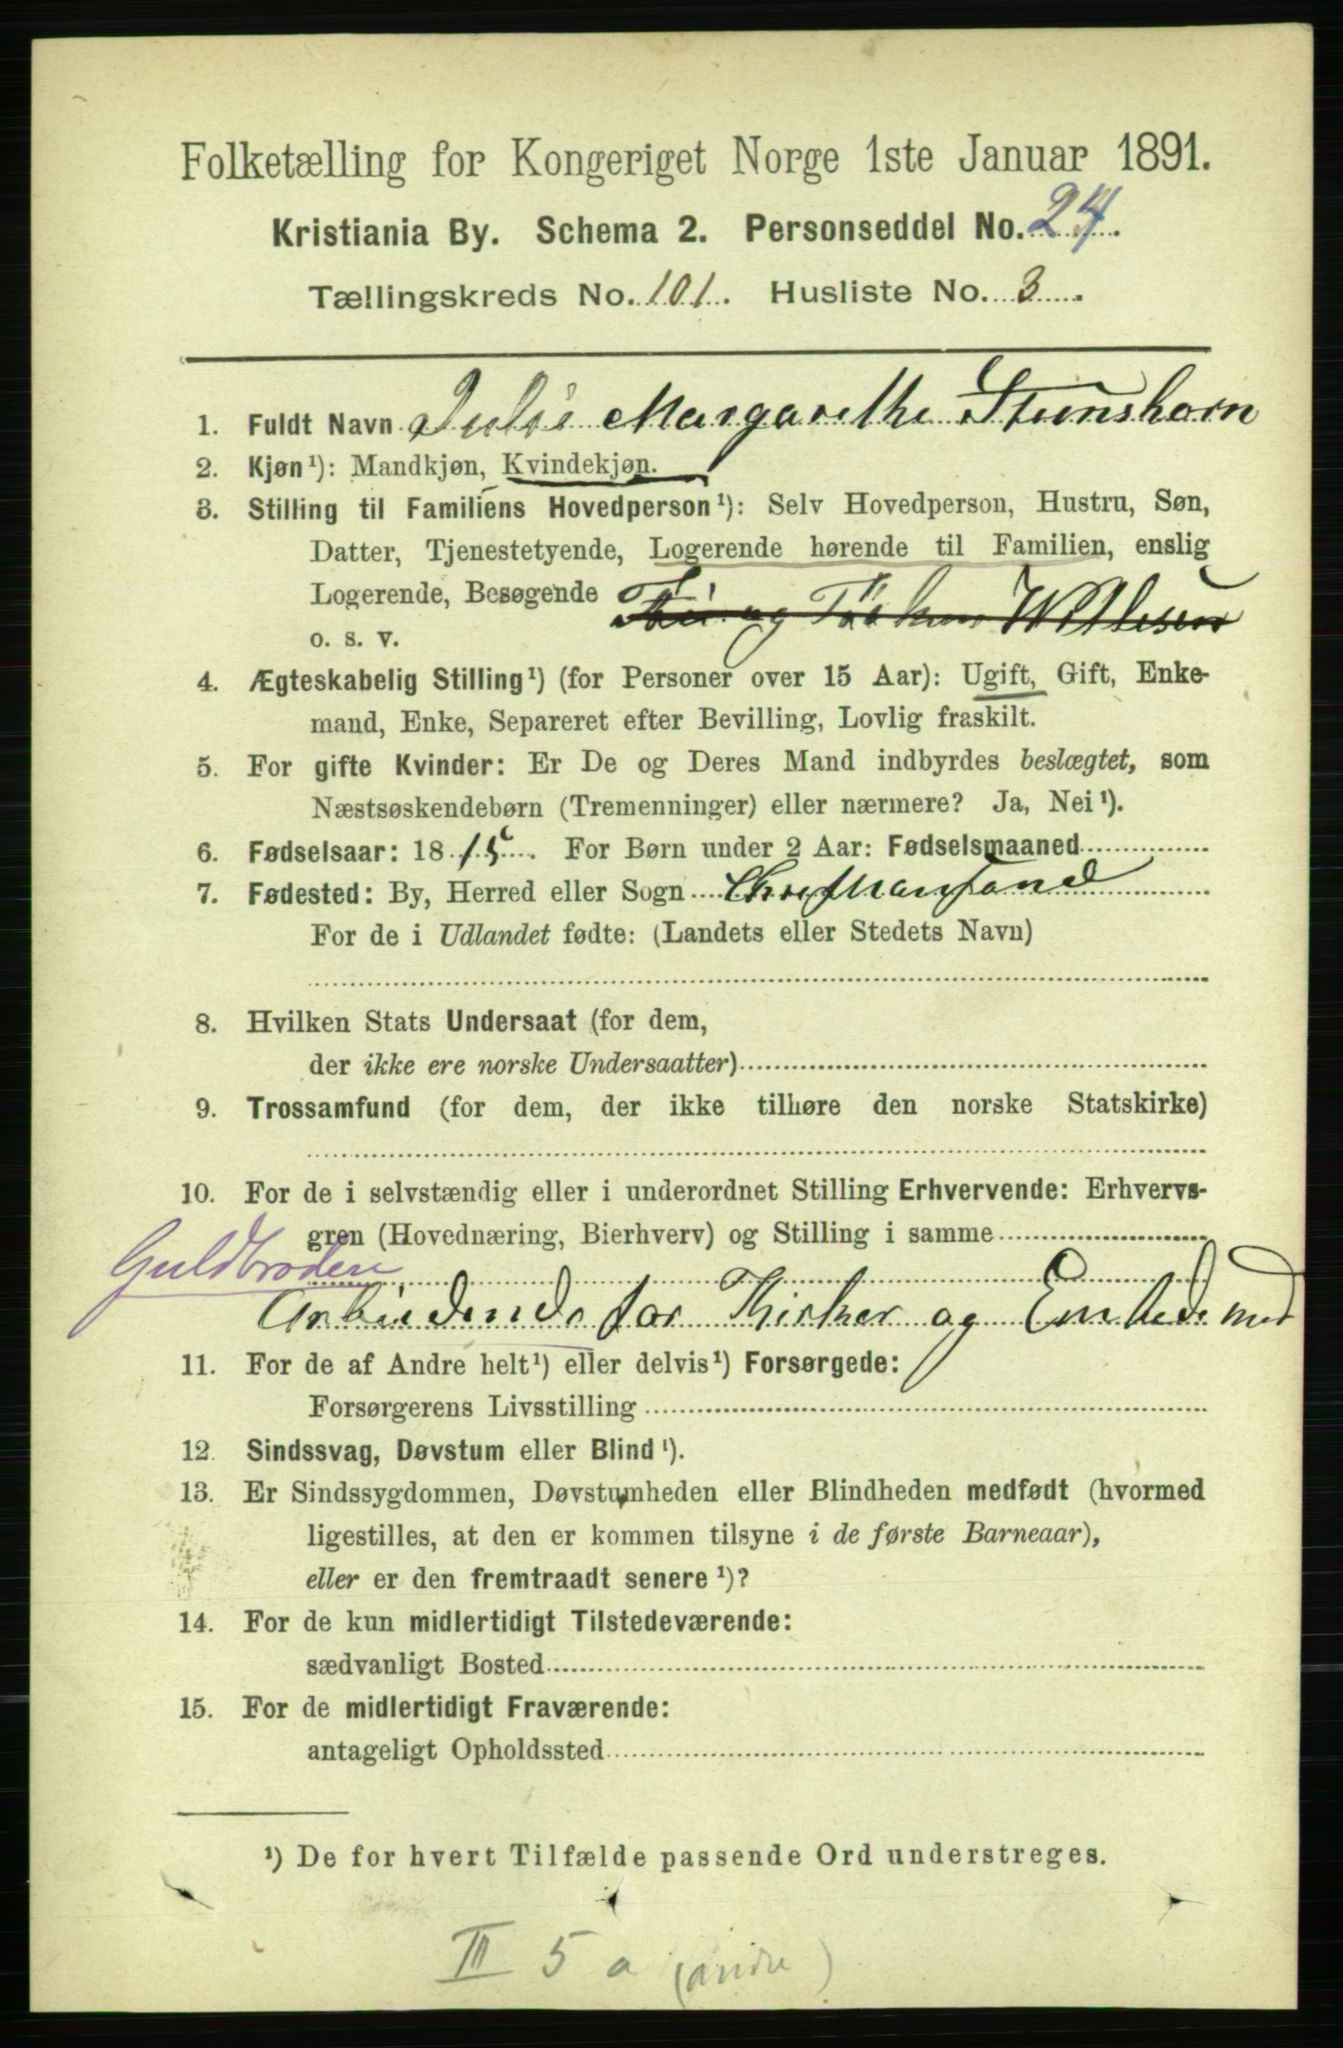 Folketælling for Kongeriget Norge 1ste Januar 1891.
Kristiania By. Schema 2. Personseddel No. 24.
Tællingskreds No. 101. Husliste No. 3.
1. Fuldt Navn Julie Margarethe Stenshorn
2. Kjøn¹): Mandkjøn, Kvindekjøn.
3. Stilling til Familiens Hovedperson¹): Selv Hovedperson, Hustru, Søn,
Datter, Tjenestetyende, Logerende hørende til Familien, enslig
Logerende, Besøgende
o. s. v.
4. Ægteskabelig Stilling¹) (for Personer over 15 Aar): Ugift, Gift, Enke-
mand, Enke, Separeret efter Bevilling, Lovlig fraskilt.
5. For gifte Kvinder: Er De og Deres Mand indbyrdes beslægtet, som
Næstsøskendebørn (Tremenninger) eller nærmere? Ja, Nei¹).
6. Fødselsaar: 1815. For Børn under 2 Aar: Fødselsmaaned
7. Fødested: By, Herred eller Sogn Christiansand
For de i Udlandet fødte: (Landets eller Stedets Navn)
8. Hvilken Stats Undersaat (for dem,
der ikke ere norske Undersaatter)
9. Trossamfund (for dem, der ikke tilhøre den norske Statskirke)
10. For de i selvstændig eller i underordnet Stilling Erhvervende: Erhvervs-
gren (Hovednæring, Bierhverv) og Stilling i samme
Guldbroderi
Arbeidende for Kirker og Embedsmd
11. For de af Andre helt¹) eller delvis¹) Forsørgede:
Forsørgerens Livsstilling
12. Sindssvag, Døvstum eller Blind¹).
13. Er Sindssygdommen, Døvstumheden eller Blindheden medfødt (hvormed
ligestilles, at den er kommen tilsyne i de første Barneaar),
eller er den fremtraadt senere¹)?
14. For de kun midlertidigt Tilstedeværende:
sædvanligt Bosted
15. For de midlertidigt Fraværende:
antageligt Opholdssted
¹) De for hvert Tilfælde passende Ord understreges.
III 5 a (andre)